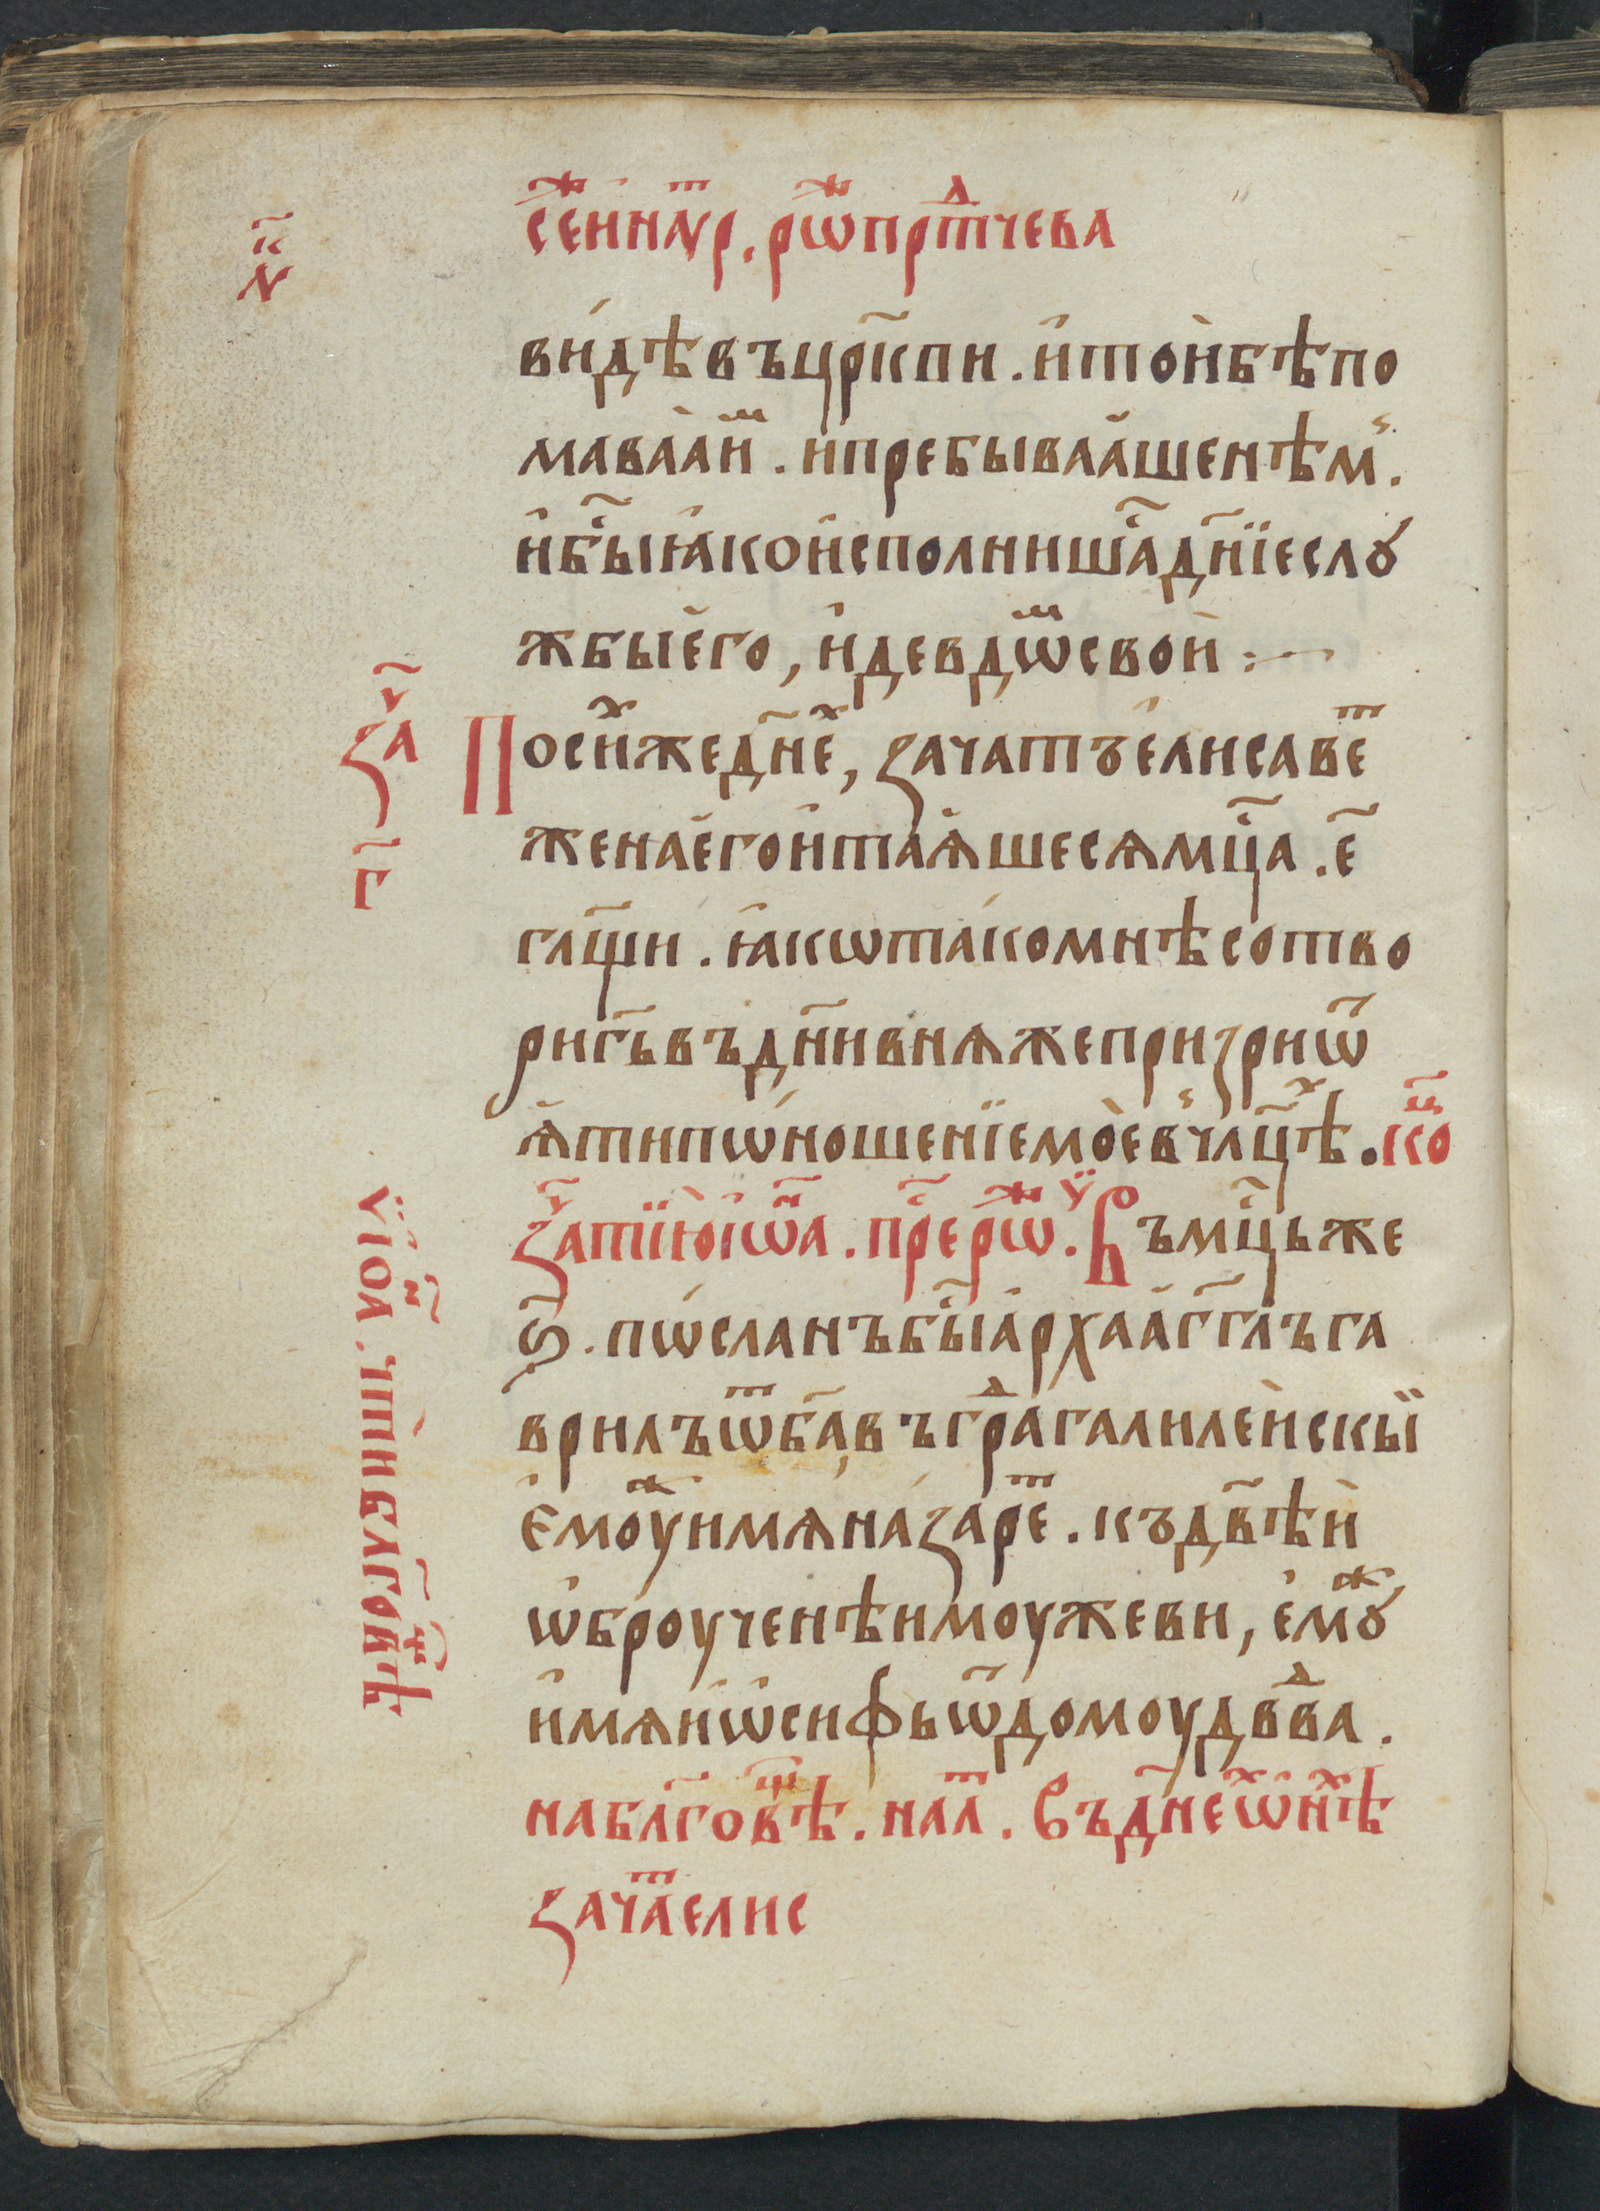 сеⷤ҇ н на҇ⷮѵр. рѡⷤ҇ прⷣтчева
видѣ въ цр҃кпи. и той бѣ по
маваа иⷨ. и пребывааше нѣмъ.
и бы҇ⷭꙗко исполнишаⷭ҇ дн҃їе слꙋ
жбы его, и де в дѡⷨ свой :—
По сиⷯ же дн҃еⷯ, зачатъ елисавеⷮ
жена его и таѧшесѧ мцⷭ҇а. е҃
гл҃щи. ꙗкѡ тако мнѣ сотво
ри гь҃ въ дн҃и внѧже призри ѿ
ѧти пѡношенїе мое в члцⷯ҃ѣ. коⷰ҇
заⷱ҇тїю іѡⷩ҇а. преⷭ҇ рѡⷤ. Въ мцⷭ҇ь же
ѕ҃. пѡсланъ быⷭ҇ архааг҃глъ га
врилъ ѿ ба҃, въ граⷣ галилейскыї
емоуⷤ имѧ назареⷮ. къ дв҃ѣ и
ѡброученѣи моужеви, емꙋⷤ
имѧ иѡсифь ѿ домоу дв҃ⷣва.
на бл҃говⷳ҇ѣ. наⷧ҇ⷮ. Въ дн҃еⷯ ѡнⷯѣ
зачаⷮ елис
н҃і
заⷱ҇
г҃